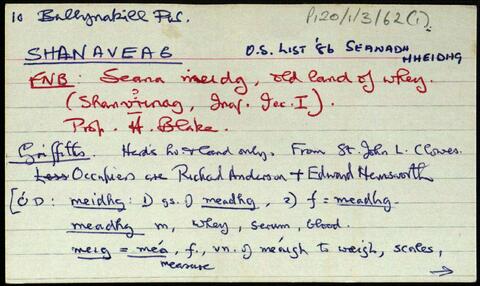 10 Ballynakill Par. P120/1/3/62(i)
SHANAVEAG O.S. LIST '86 SEANADH
MHEIDHG
FNB: Seana meidg, old land of whey.
(Shanveenag, Inq. Jec. I).
Prop. H. Blake.
Griffith Herd's ho & land only. From St. John L. Clowes.
Less Occupiers are Richard Anderson & Edward Hemsworth
[Ó D: meidhg: 1) gs. of meadhg, 2) f = meadhg.
meadhg m, whey, serum, blood.
meig = meá, f., vn. of meáigh to weigh, scales,
measure